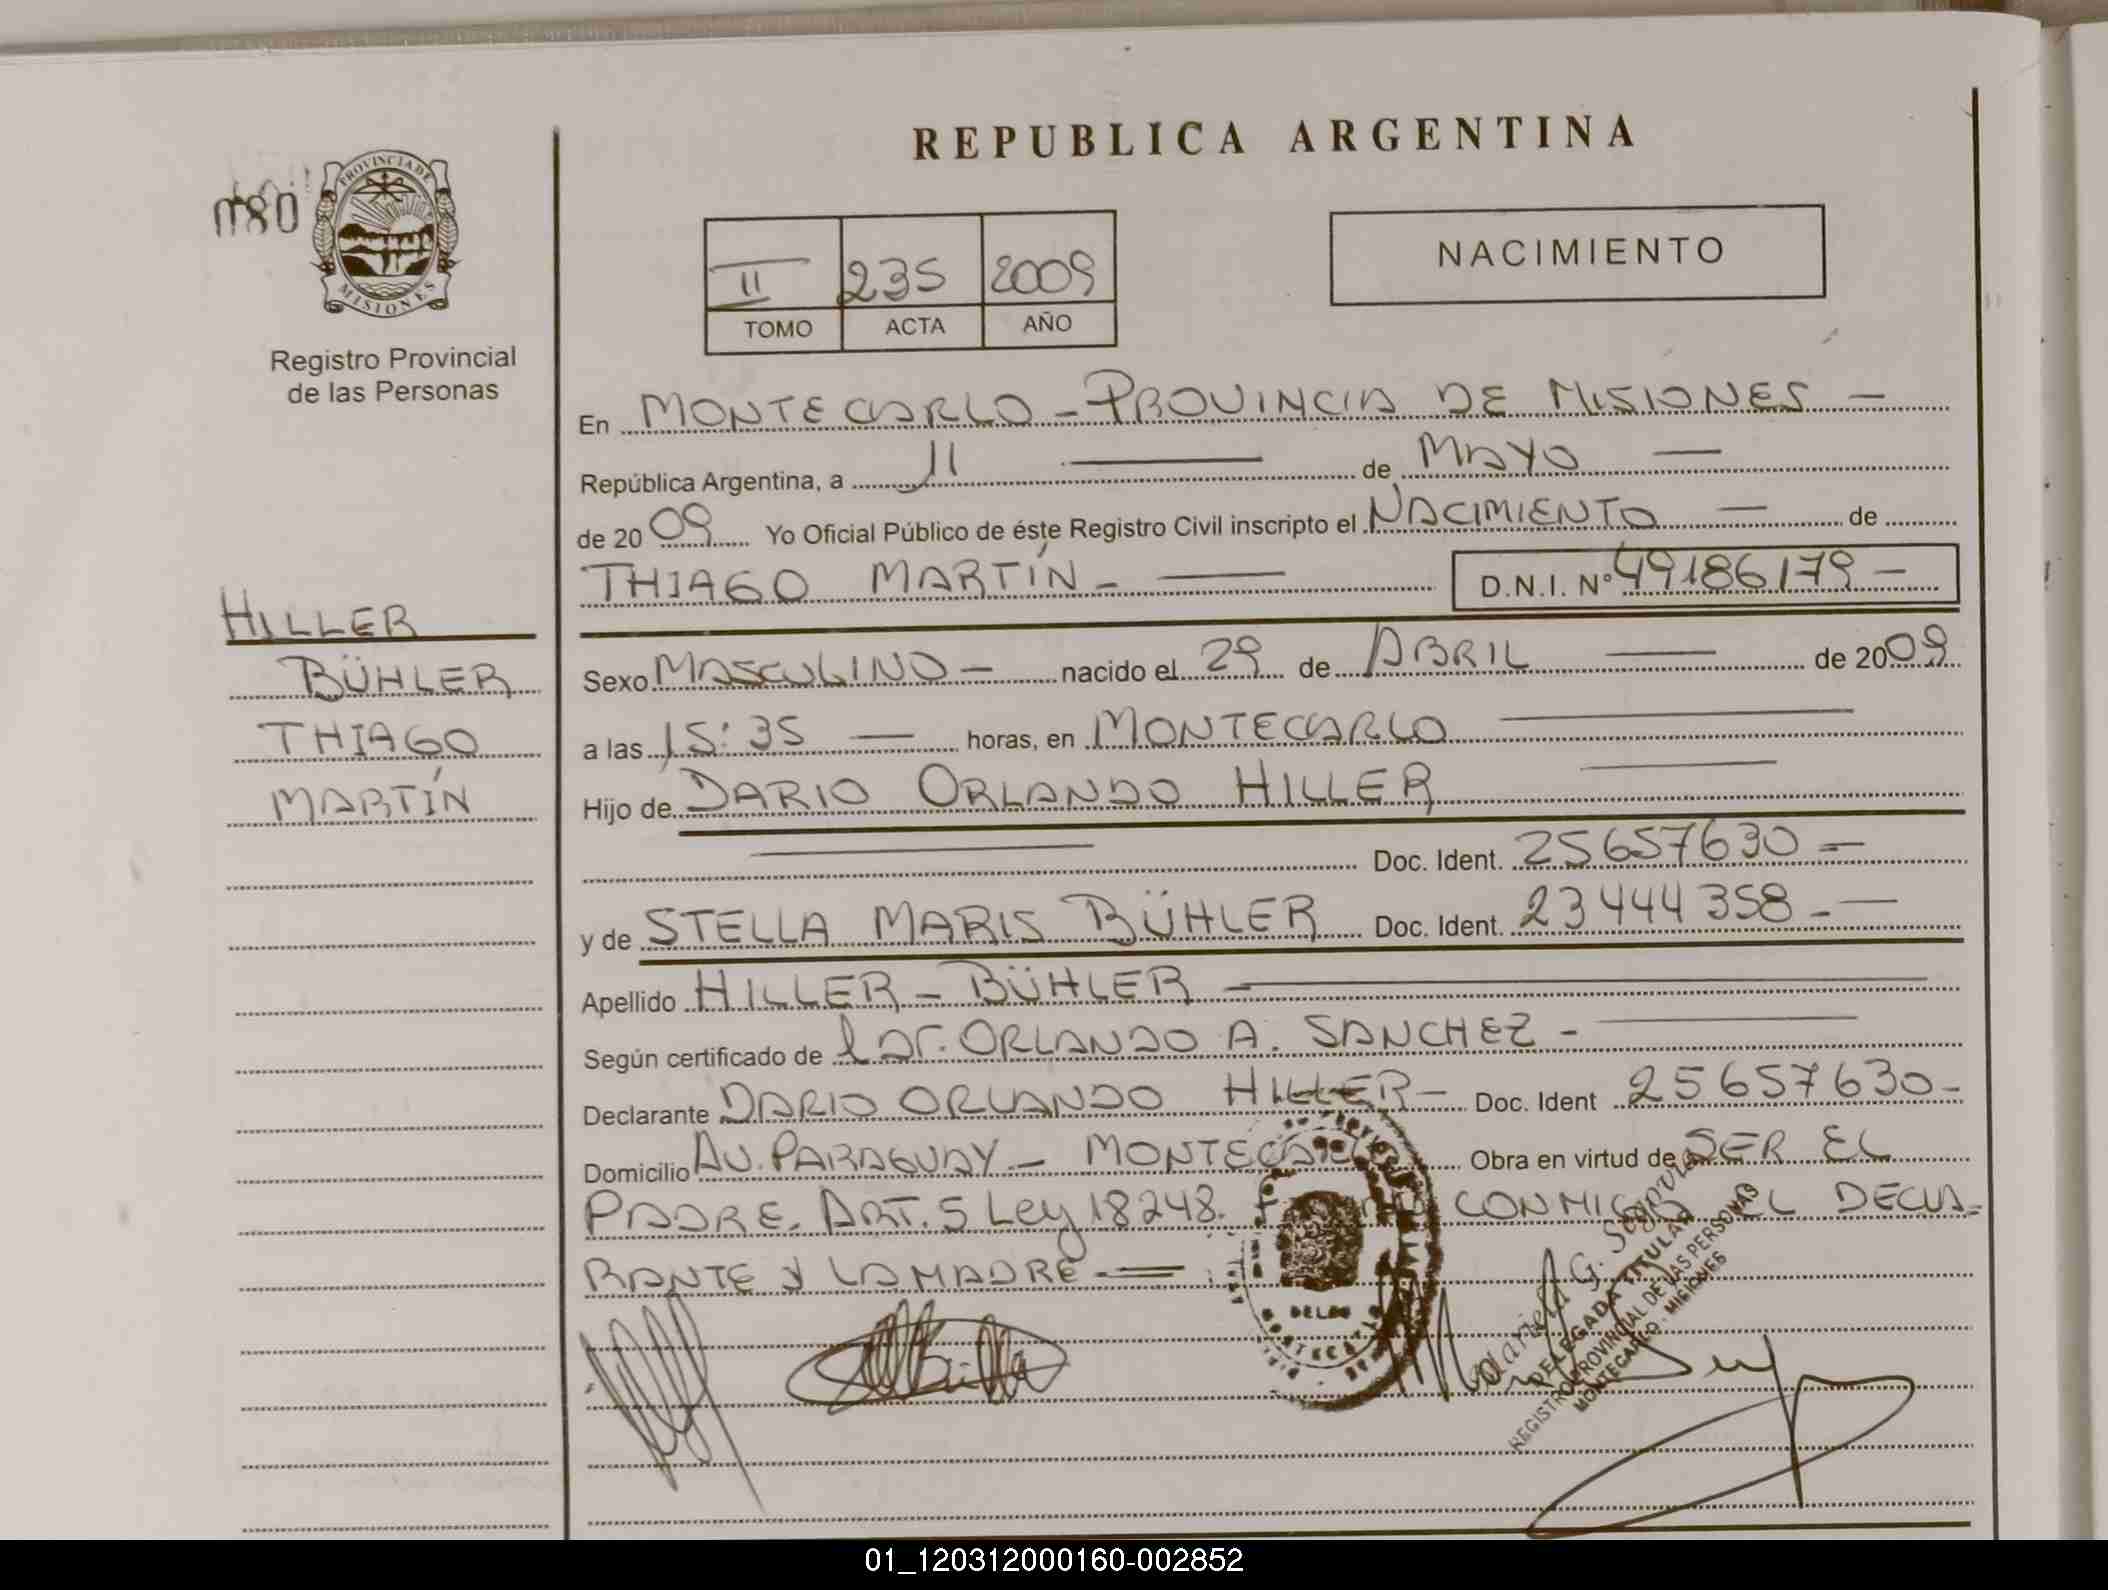 REPUBLICA ARGENTINA
080
PROVINCIA DE
MISIONES
Registro Provincial
de las Personas
II 235 2009
TOMO ACTA AÑO
NACIMIENTO
En MONTECARLO - PROVINCIA DE MISIONES -
República Argentina, a 11 — de MAYO —
de 2009 Yo Oficial Público de éste Registro Civil inscripto el NACIMIENTO — de
THIAGO MARTÍN - — D.N.I. Nº 49186179 -
HILLER
BÜHLER
THIAGO
MARTÍN
Sexo MASCULINO - nacido el 29 de ABRIL — de 2009
a las 15:35 — horas, en MONTECARLO —
Hijo de DARIO ORLANDO HILLER —
— Doc. Ident. 25657630 —
y de STELLA MARIS BÜHLER Doc. Ident. 23444358 - —
Apellido HILLER - BÜHLER —
Según certificado de Dr. ORLANDO A. SANCHEZ - —
Declarante DARIO ORLANDO HILLER - Doc. Ident 25657630 -
Domicilio AV. PARAGUAY - MONTECARLO Obra en virtud de SER EL
PADRE. ART. 5 Ley 18248. CONMIGO EL DECLA-
RANTE Y LA MADRE —
DELEGADA TITULAR
REGISTRO PROVINCIAL DE LAS PERSONAS
MONTECARLO - MISIONES
01_120312000160-002852